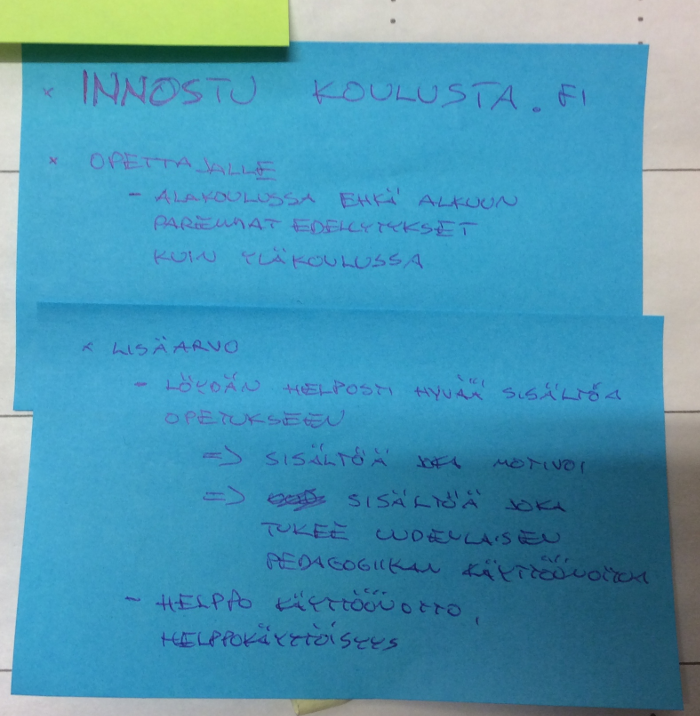 × INNOSTU KOULUSTA.FI
× OPETTAJALLE
- ALAKOULUSSA EHKÄ ALKUUN
PAREMMAT EDELLYTYKSET
KUIN YLÄKOULUSSA
× LISÄARVO
- LÖYDÄN HELPOSTI HYVÄÄ SISÄLTÖÄ
OPETUKSEEN
=> SISÄLTÖÄ JOKA MOTIVOI
=> SISÄLTÖÄ JOKA
TUKEE UUDENLAISEN
PEDAGOGIIKAN KÄYTTÖÖNOTTOA
- HELPPO KÄYTTÖÖNOTTO,
HELPPOKÄYTTÖISYYS